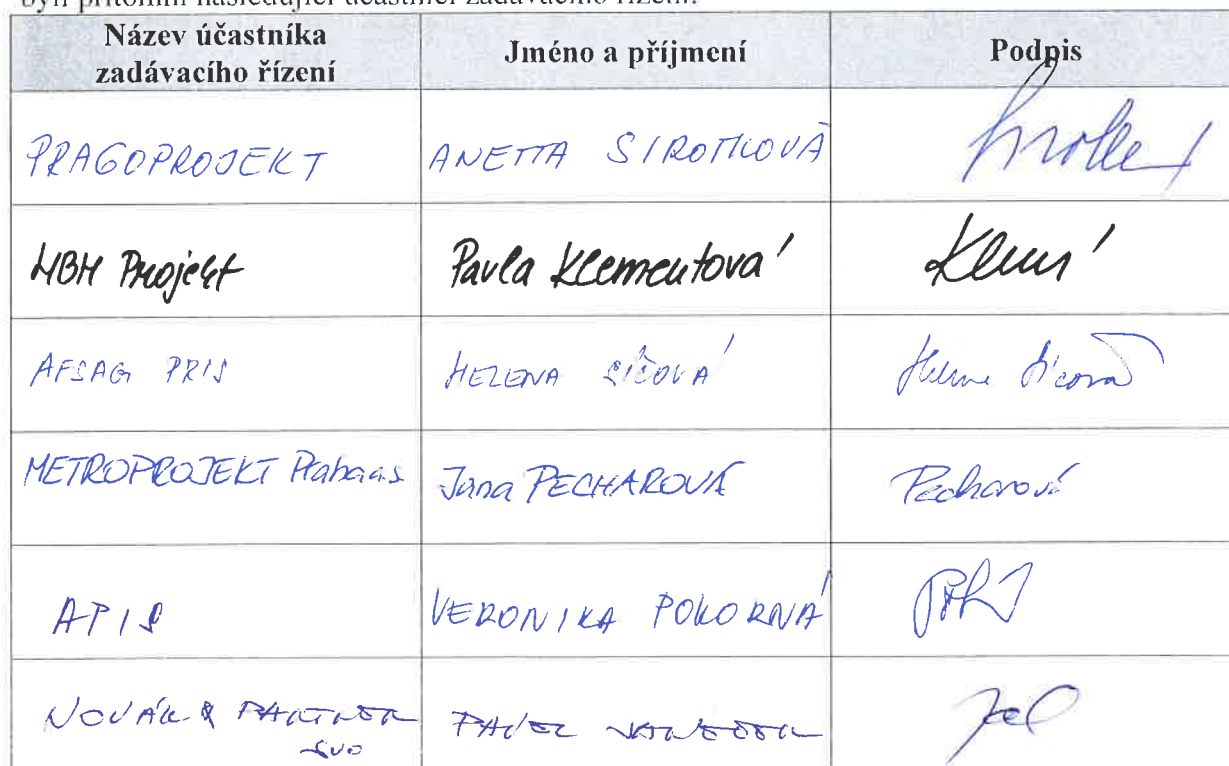 byli přítomni následující účastníci zadávacího řízení:
Název účastníka zadávacího řízení Jméno a příjmení Podpis
PRAGOPROJEKT ANETTA SIROTKOVÁ
HBH Projekt Pavla Klementová
AFSAG PRIS HELENA
METROPROJEKT Praha a.s. Jana PECHAROVÁ Pecharová
APIS VERONIKA POKORNÁ
NOVÁK & PARTNER PAVEL